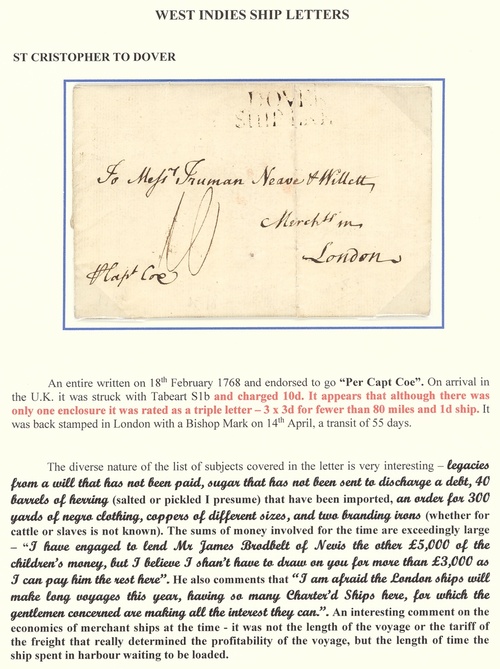 WEST INDIES SHIP LETTERS
ST CRISTOPHER TO DOVER
DOVER
SHIP
To Messrs Truman Neave & Willett,
Merchts in
London
10
Capt Coe
An entire written on 18th February 1768 and endorsed to go "Per Capt Coe". On arrival
in the U.K. it was struck with Tabeart S1b and charged 10d. It appears that although there was
only one enclosure it was rated as a triple letter – 3 x 3d for fewer than 80 miles and 1d ship. It
was back stamped in London with a Bishop Mark on 14th April, a transit of 55 days.
The diverse nature of the list of subjects covered in the letter is very interesting – legacies
from a will that has not been paid, sugar that has not been sent to discharge a debt, 40
barrels of herring (salted or pickled I presume) that have been imported, an order for 300
yards of negro clothing, coppers of different sizes, and two branding irons (whether for
cattle or slaves is not known). The sums of money involved for the time are exceedingly large
– "I have engaged to lend Mr James Brodbelt of Nevis the other £5,000 of the
children's money, but I believe I shan't have to draw on you for more than £3,000 as
I can pay him the rest here". He also comments that "I am afraid the London ships will
make long voyages this year, having so many Charter'd Ships here, for which the
gentlemen concerned are making all the interest they can.". An interesting comment on the
economics of merchant ships at the time - it was not the length of the voyage or the tariff of
the freight that really determined the profitability of the voyage, but the length of time the
ship spent in harbour waiting to be loaded.